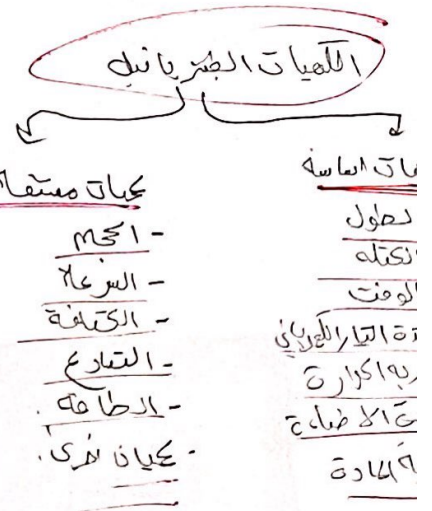 الكميات الفيزيائية
كميات اساسية
الطول
الكتله
الوقت
شدة التيار الكهربائي
درجة الحرارة
شدة الاضاءة
كمية المادة
كميات مشتقة
- الحجم
- السرعة
- الكثافة
- التسارع
- الطاقة.
- كميات اخرى.